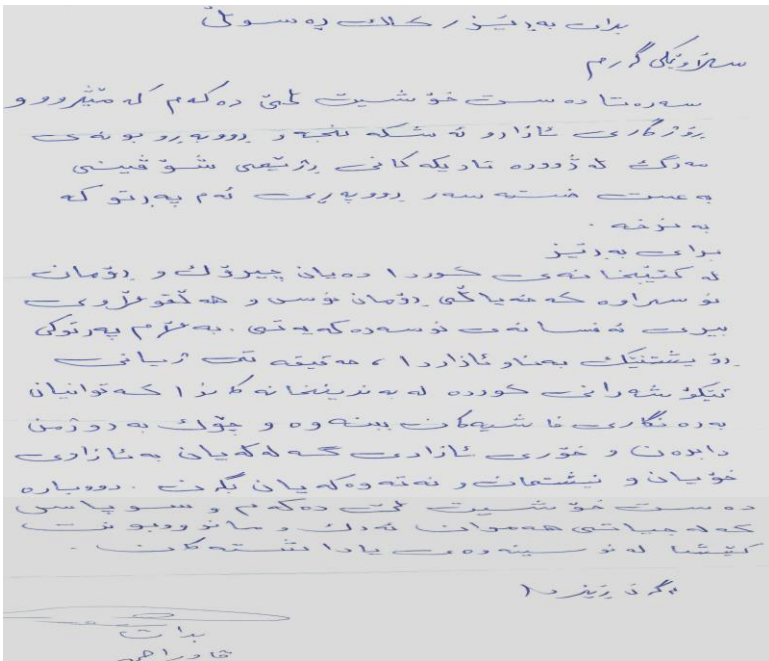 برای بەڕێز / کاک ڕەسوڵ
سڵاوێکی گەرم
سەرەتا دەست خۆشیت لێ دەکەم کە مێژوو و
ڕۆژگاری ئازار و ئەشکەنجە و ڕووبەڕوبونەی
مەرگ لە ژوورە تاریکەکانی ڕژێمی شۆڤینی
بەعست خستە سەر ڕووپەڕی ئەم پەرتوکە
بە نرخە .
برای بەڕێز
لە کتێبخانەی کوردا دەیان چیرۆک و ڕۆمان
نوسراوە کە خەیاڵی ڕۆمان نوس و هەڵقوڵاوی
بیری ئەفسانەی نوسەرەکەیەتی . بەڵام پەرتوکی
ڕۆیشتنێک بەناو ئازاردا ، حەقیقەتی ژیانی
تێکۆشەرانی کوردە لە بەندینخانەکاندا کە توانیان
بەرەنگاری فاشیەکان ببنەوە و چۆک بە دوژمن
دابدەن و خۆری ئازادی گەلەکەیان بە ئازادی
خۆیان و نیشتمان و نەتەوەکەیان بگرن . دووبارە
دەست خۆشیت لێ دەکەم و سوپاسی
کە لە جیاتی هەموان ئەرک و ماندووبونت
کێشا لە نوسینەوەی یادا شتەکان .
لەگەڵ ڕێزدا
برات
قادر